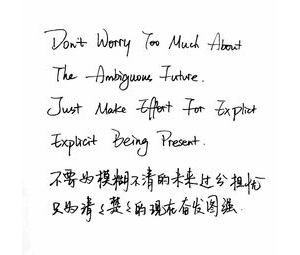 Don't Worry Too Much About
The Ambiguous Future.
Just Make Effort For Explict
Explicit Being Present.
不要为模糊不清的未来过分担忧
只为清清楚楚的现在奋发图强.